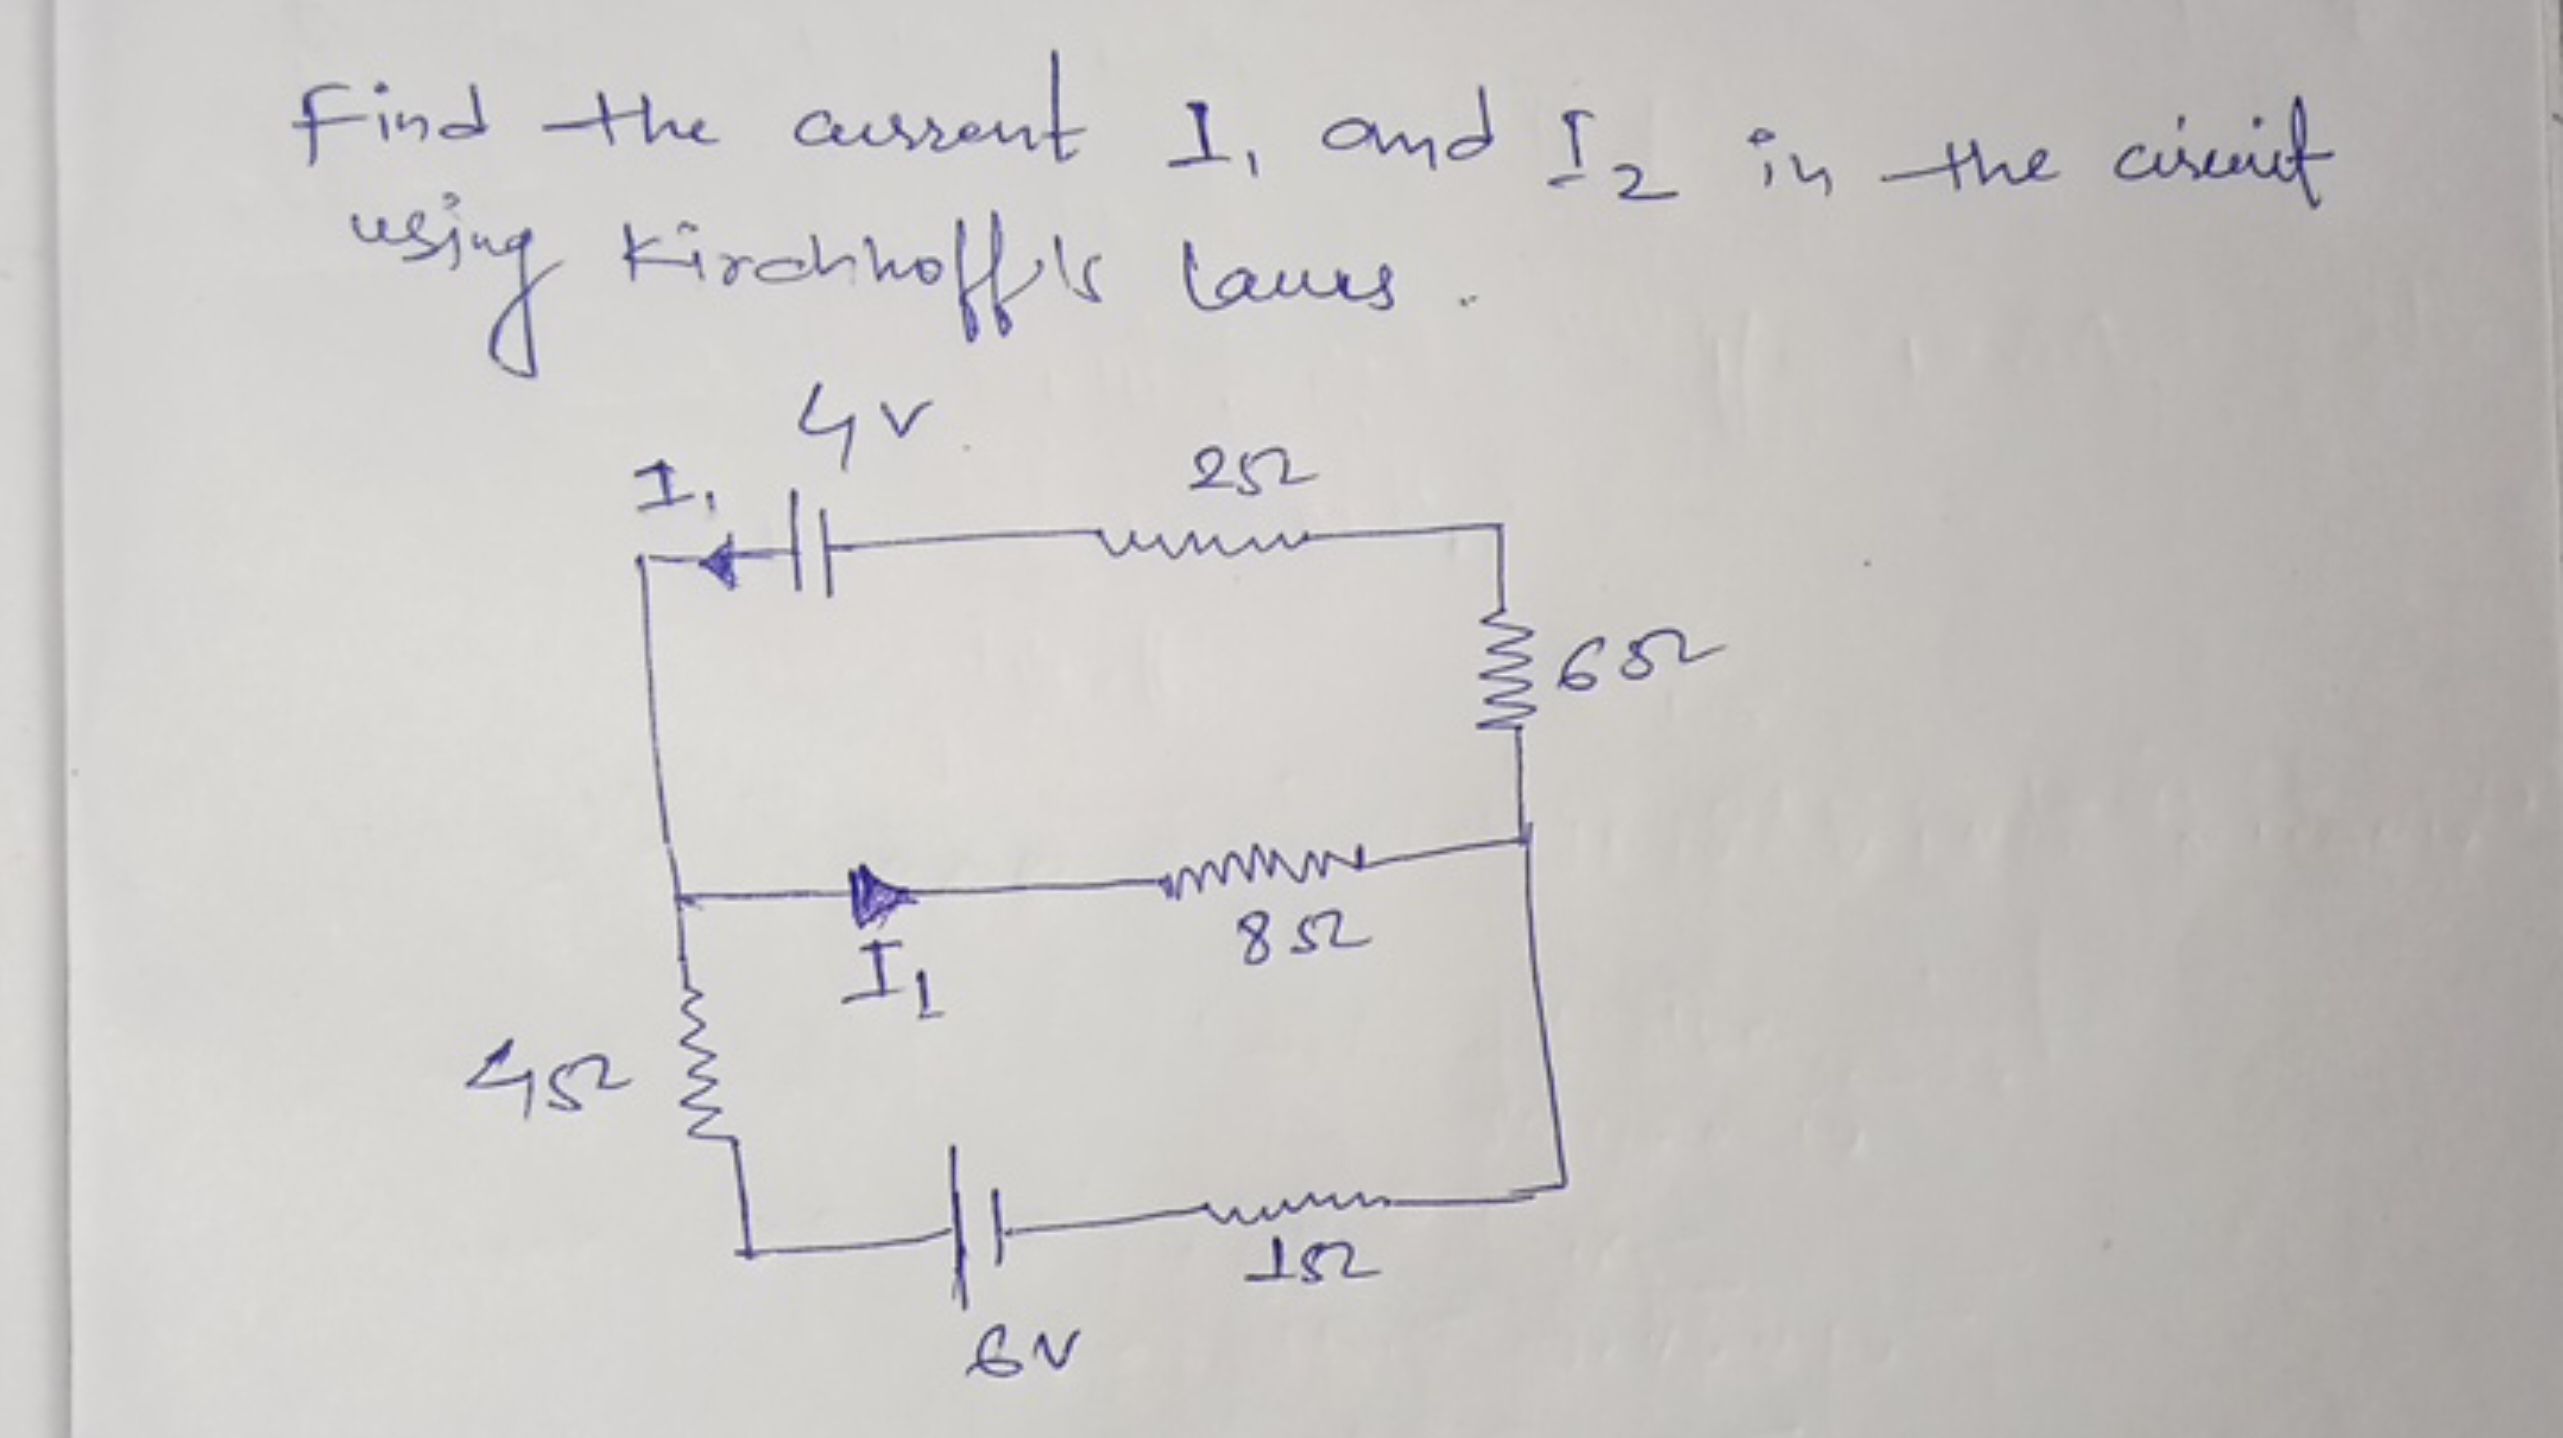 Find the current I₁ and I₂ in the circuit
using Kirchhoff's laws.
4V
I₁
2Ω
6Ω
8Ω
I₁
4Ω
1Ω
6V